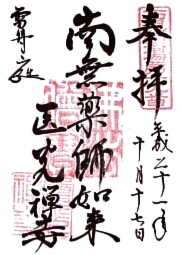 奉拝
平成二十一年
十月十七日
南無薬師如来
医光禅寺